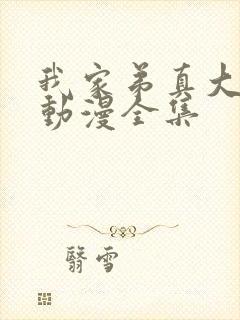 我家弟真大
動漫全集
翳雪